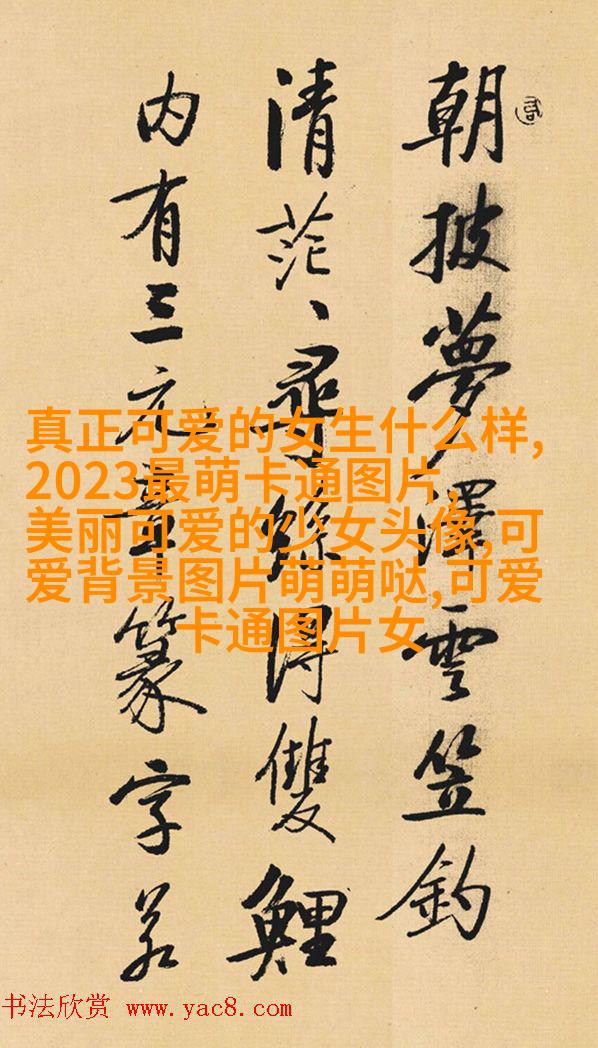 朝披夢澤雲笠釣
清茫、尋絲得雙鯉
内有三元章篆字若
真正可爱的女生什么样,
2023最萌卡通图片,
美丽可爱的少女头像,可
爱背景图片萌萌哒,可爱
卡通图片女
书法欣赏 www.yac8.com